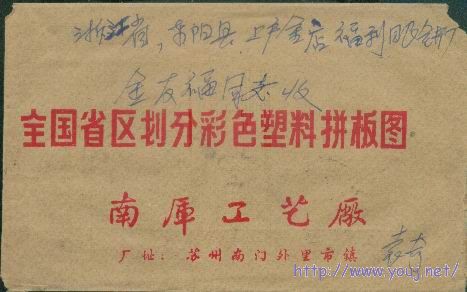 浙江省，东阳县，上卢金店福利
金友福同志收
全国省区划分彩色塑料拼板图
南厍工艺厰
厂址：苏州南门外里市镇
http://www.youj.net/